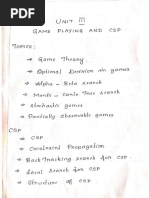 UNIT III
GAME PLAYING AND CSP
Topics:
→ Game Theory
→ Optimal Decision in games
→ Alpha - Beta search
→ Monte - Carlo Tree search
→ Stochastic games
→ Partially observable games
CSP
→ CSP
→ Constraint Propagation
→ Backtracking search for CSP
→ Local Search for CSP
→ Structure of CSP.